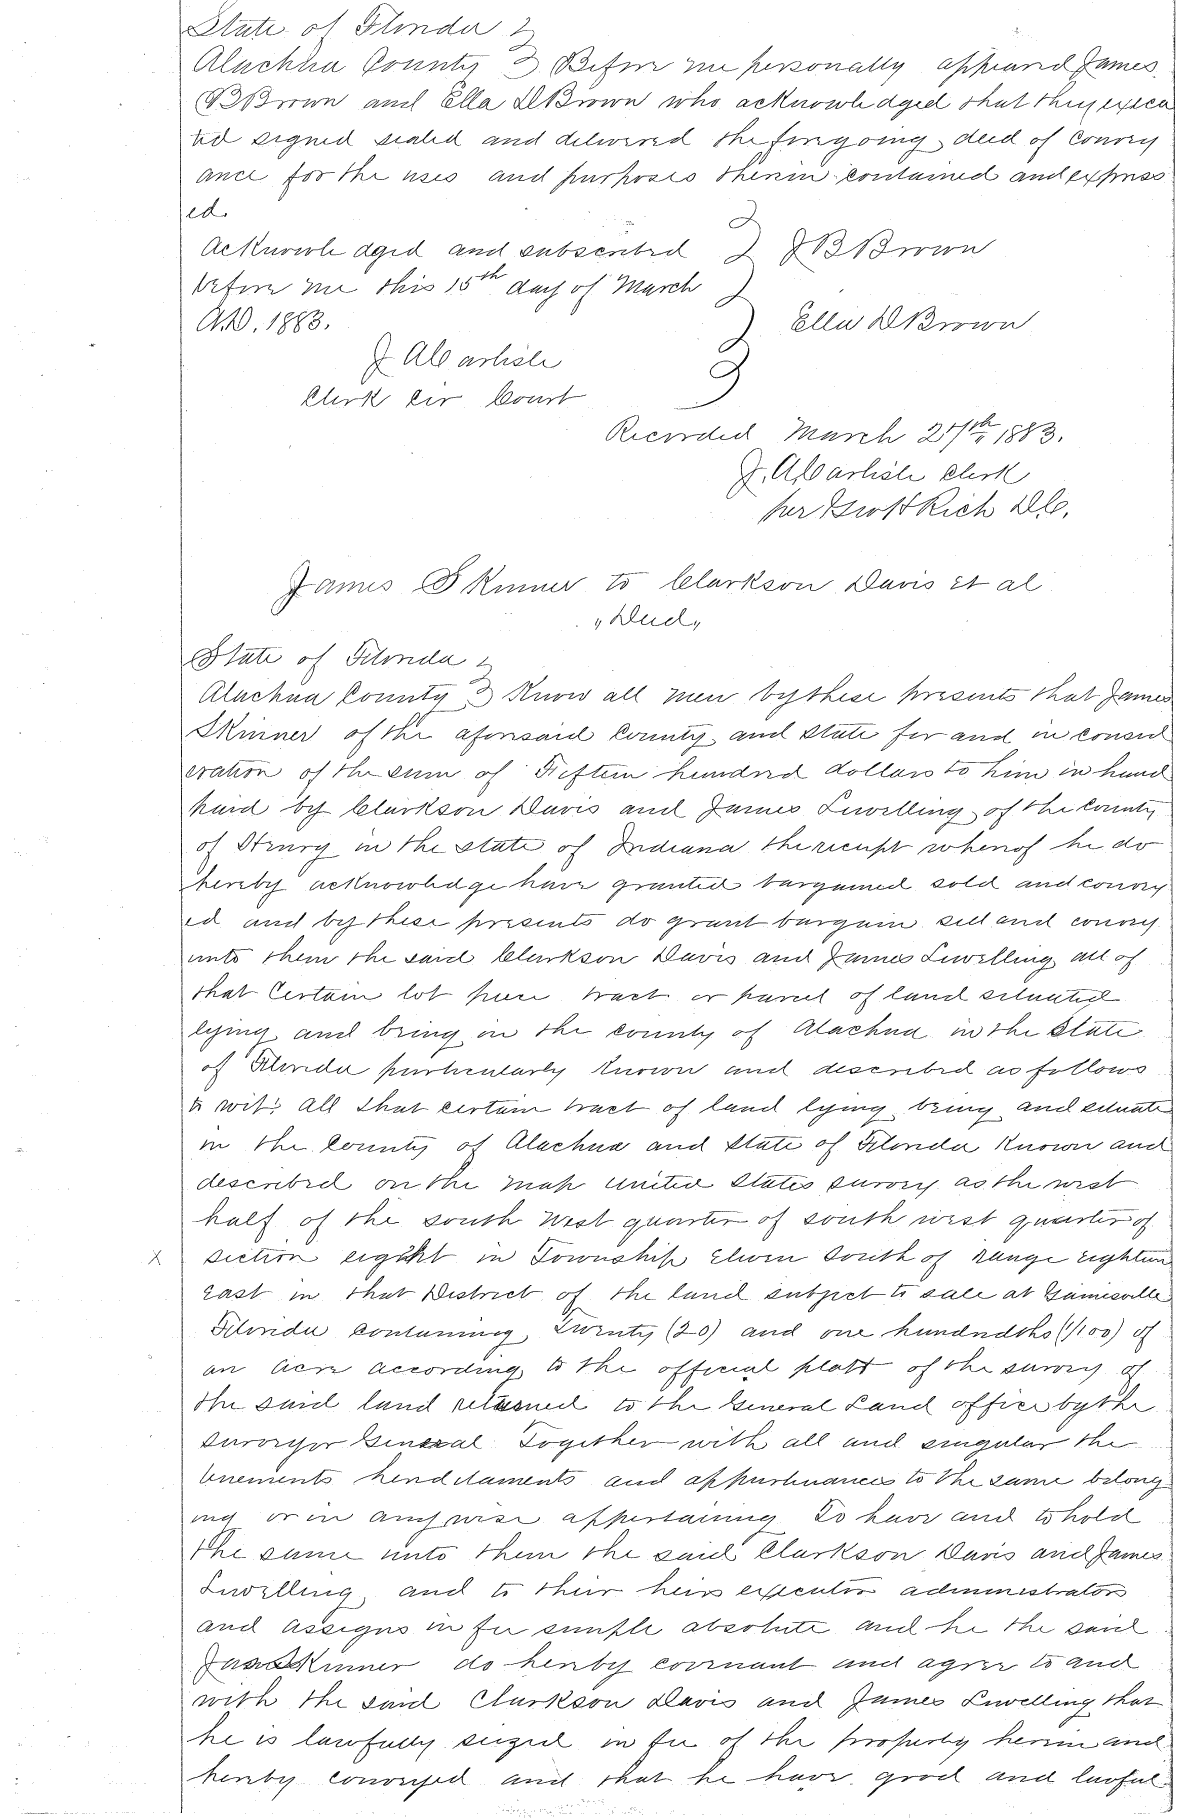 State of Florida }
Alachua County } Before me personally appeared James
B Brown and Ella D Brown who acknowledged that they execu
ted signed sealed and delivered the foregoing deed of convey
ance for the uses and purposes therein contained and express
ed.
Acknowledged and subscribed } J B Brown
before me this 15th day of March }
A.D. 1883. } Ella D Brown
J A Carlisle }
Clerk Cir Court
Recorded March 27th 1883.
J. A. Carlisle Clerk
per Rich D.C.
James Skinner to Clarkson Davis et al
"Deed"
State of Florida }
Alachua County } Know all men by these presents that James
Skinner of the aforesaid County and State for and in consid
eration of the sum of Fifteen hundred dollars to him in hand
paid by Clarkson Davis and James Lewelling of the County
of Henry in the State of Indiana the receipt whereof he do
hereby acknowledge have granted bargained sold and convey
ed and by these presents do grant bargain sell and convey
unto them the said Clarkson Davis and James Lewelling all of
that Certain lot piece tract or parcel of land situated
lying and being in the county of Alachua in the State
of Florida particularly known and described as follows
to wit: all that certain tract of land lying being and situate
in the County of Alachua and State of Florida Known and
described on the map United States survey as the west
half of the south West quarter of south west quarter of
X section eight in Township Eleven South of range eighteen
East in that District of the land subject to sale at Gainesville
Florida containing Twenty (20) and one hundredths (1/100) of
an Acre according to the official platt of the survey of
the said land returned to the General Land office by the
surveyor General Together with all and singular the
tenements hereditaments and appurtenances to the same belong
ing or in any wise appertaining To have and to hold
the same unto them the said Clarkson Davis and James
Lewelling and to their heirs executor administrators
and assigns in fee simple absolute and he the said
Jas Skinner do hereby covenant and agree to and
with the said Clarkson Davis and James Lewelling that
he is lawfully seized in fee of the property herein and
hereby conveyed and that he have good and lawful